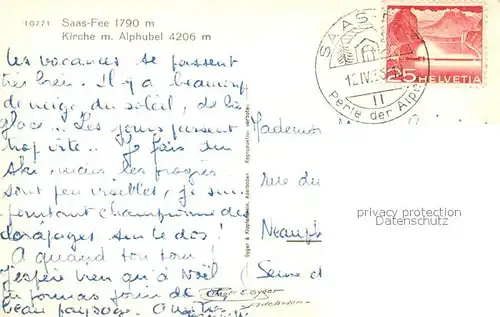 10771 Saas-Fee 1790 m
Kirche m. Alphubel 4206 m
SAAS-FEE
12.IV.5
II
Perle der Alpen
25 HELVETIA
Les vacances se passent
très bien. Il y a beaucoup
de neige, du soleil, de la
glace... Les jours passent
trop vite.. Je fais du
ski, mais les progrès
sont peu visibles, je suis
pourtant championne de
dérapages sur le dos!
A quand ton tour!
J'espère bien qu'à Noël
tu pourras jouir de ce
beau paysage.
Gyger & Klopfenstein, Adelboden Reproduktion verboten
Mademoi
rue du
Neauph
Seine et
E. Gyger
Adelboden
privacy protection
Datenschutz